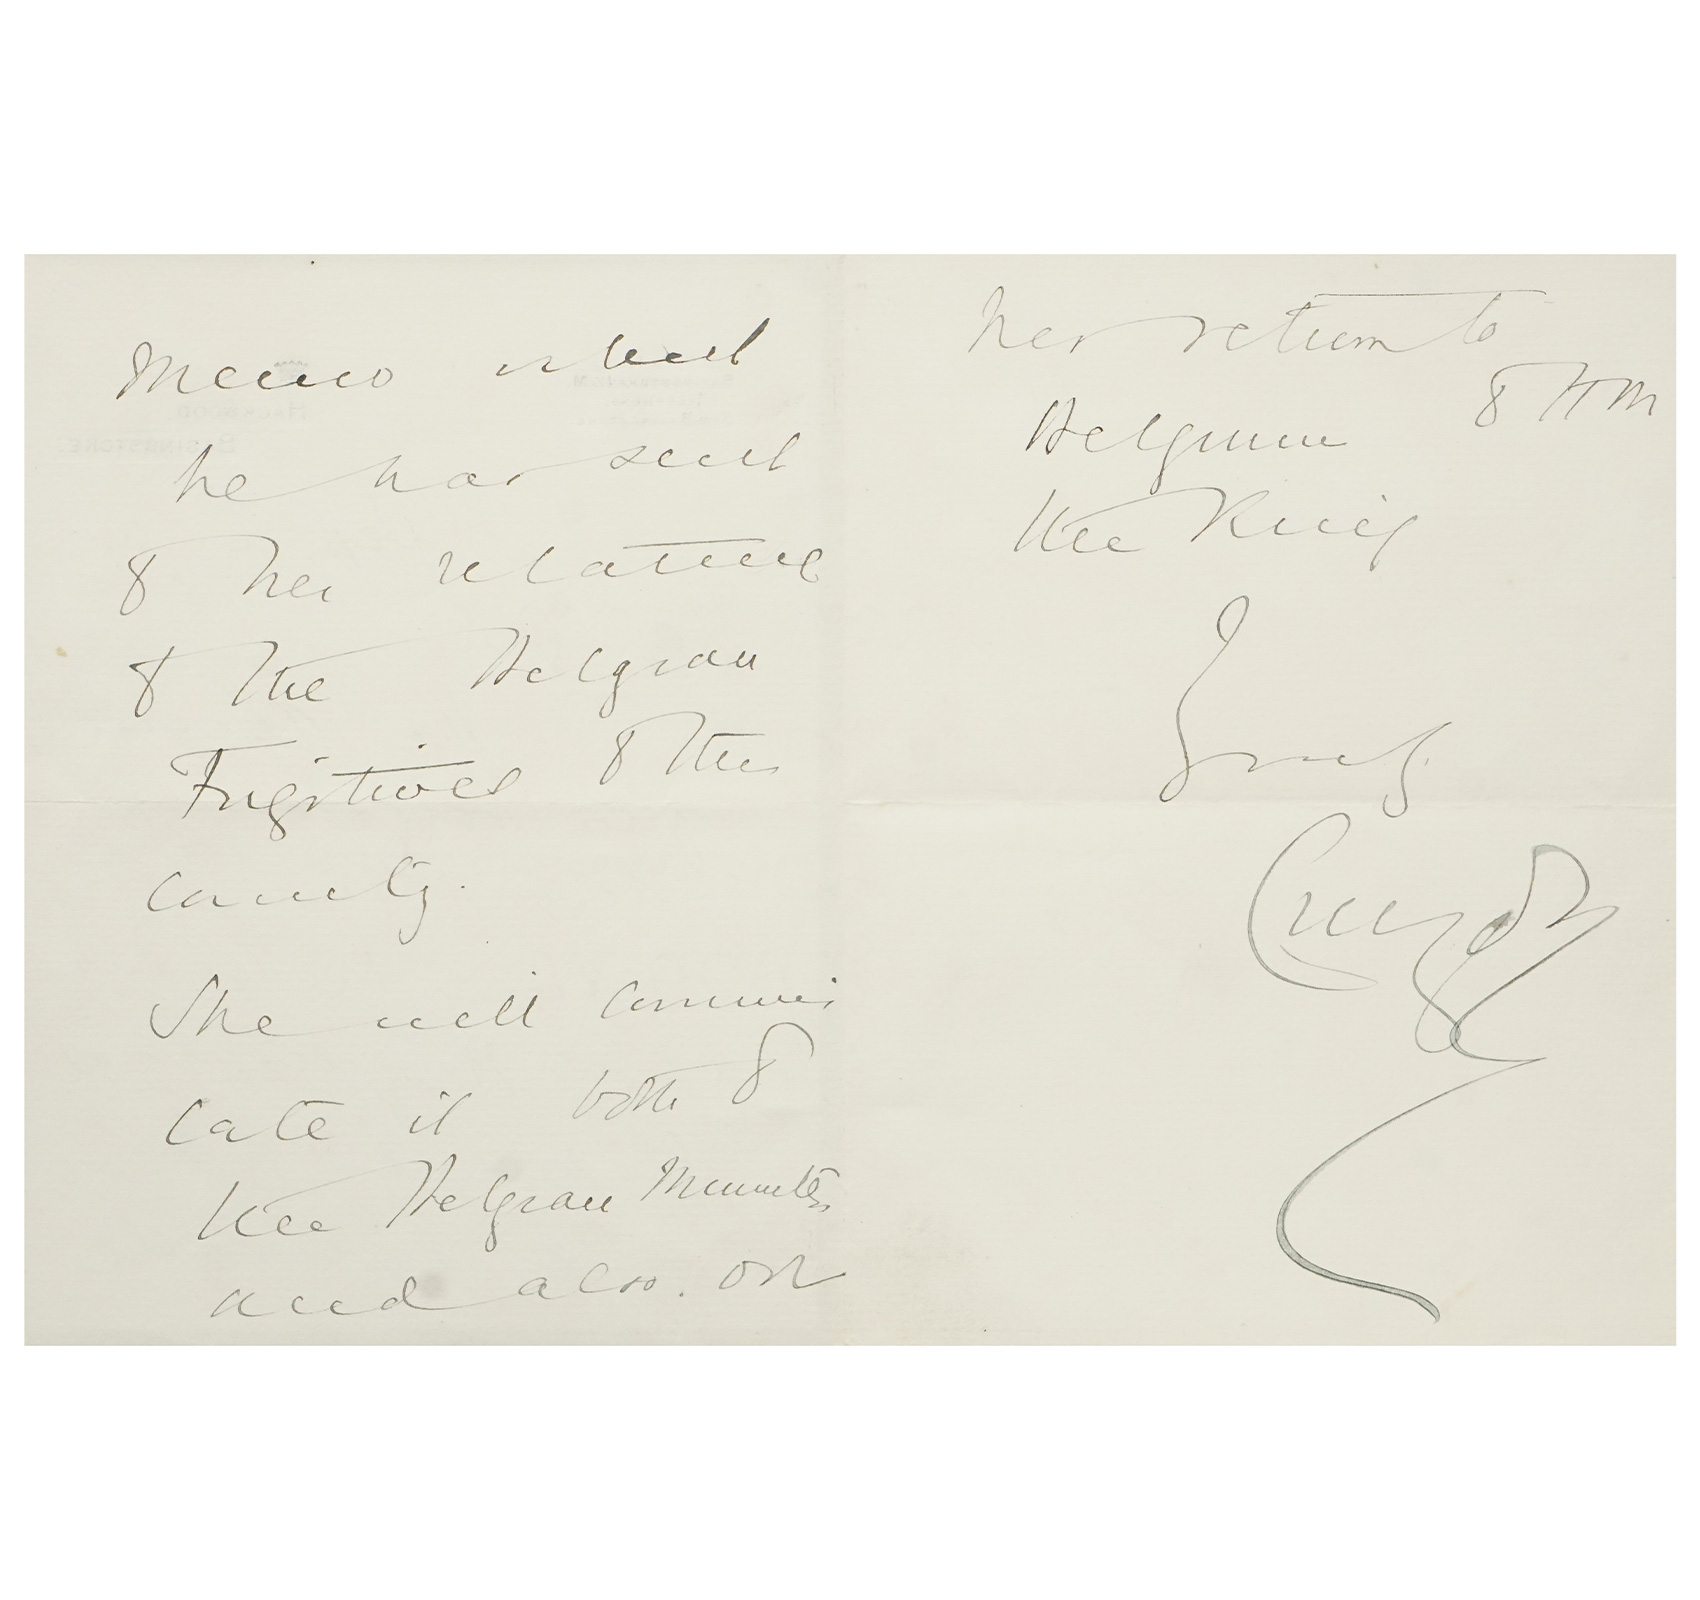 Memo which
he has sent
to her relating
to the Belgian
Fugitives to this
county.
She will communi
cate it both to
the Belgian Minister
and also. on
her return to
Belgium to HM
the King
Curzon
HACKWOOD.
BASINGSTOKE.